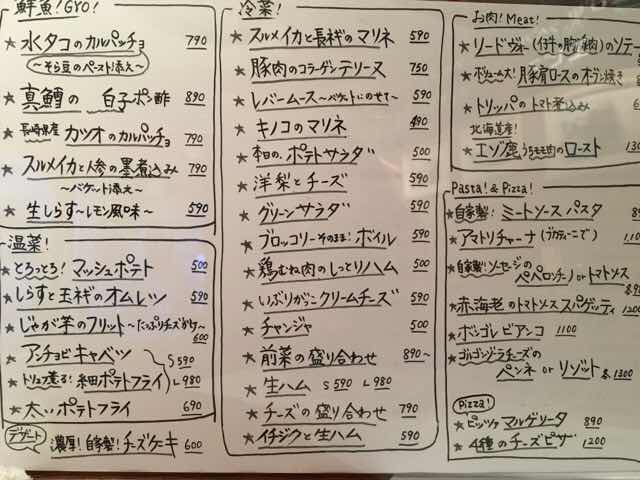 鮮魚! GYO!
★ 水タコのカルパッチョ 790
~そら豆のペースト添え~
★ 真鱈の 白子ポン酢 890
★ 長崎県産 カツオのカルパッチョ 790
★ スルメイカと人参の墨煮込み 790
~バゲット添え~
★ 生しらす~レモン風味~ 590
温菜!
★ とろっとろ! マッシュポテト 500
★ しらすと玉ネギのオムレツ 590
★ じゃが芋のフリット~たっぷりチーズがけ~ 600
★ アンチョビキャベツ
★ トリュフ薫る! 細ポテトフライ S 590 L 980
★ 太いポテトフライ 690
デザート
濃厚! 自家製! チーズケーキ 600
冷菜!
★ スルメイカと長ネギのマリネ 590
★ 豚肉のコラーゲンテリーヌ 750
★ レバームース~バゲットにのせて~ 590
★ キノコのマリネ 490
★ 本日のポテトサラダ 500
★ 洋梨とチーズ 590
★ グリーンサラダ 590
★ ブロッコリーそのまま! ボイル 590
★ 鶏むね肉のしっとりハム 500
★ いぶりがっこクリームチーズ! 590
★ チャンジャ 500
★ 前菜の盛り合わせ 890~
★ 生ハム S 590 L 980
★ チーズの盛り合わせ 790
★ イチジクと生ハム 590
お肉! Meat!
★ リードヴォー(仔牛の胸腺)のソテー
★ 豚肩ロースのオーブン焼き
★ トリッパのトマト煮込み
北海道産!
★ エゾ鹿うちモモ肉のロースト
Pasta! & Pizza!
★ 自家製! ミートソースパスタ
★ アマトリチャーナ(ブカティーニで) 1100
★ 自家製! ソーセージの
ペペロンチーノ or トマトソース 890
★ 赤海老のトマトソーススパゲッティ 1200
★ ボンゴレビアンコ 1100
★ ゴルゴンゾーラチーズの
ペンネ or リゾット 各1300
Pizza!
★ ピッツァ マルゲリータ 890
★ 4種のチーズピザ 1200